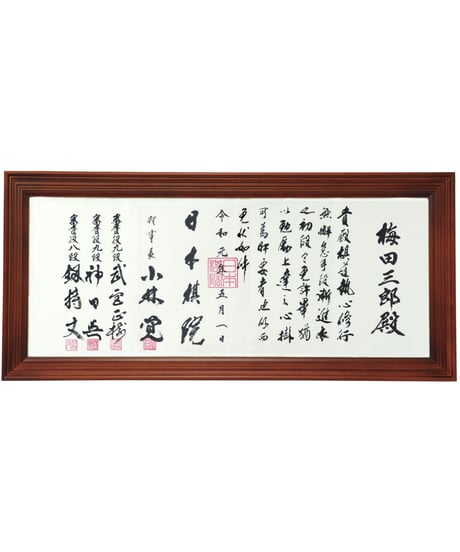 梅田三郎殿
貴殿棋道執心修行
無懈怠手段漸進依
之初段令免許畢猶
以勉励上達之心掛
可為肝要者也仍而
免状如件
令和元年五月一日
日本棋院
理事長 小林覚
審査役九段 武宮正樹
審査役九段 神田英
審査役八段 剱持丈